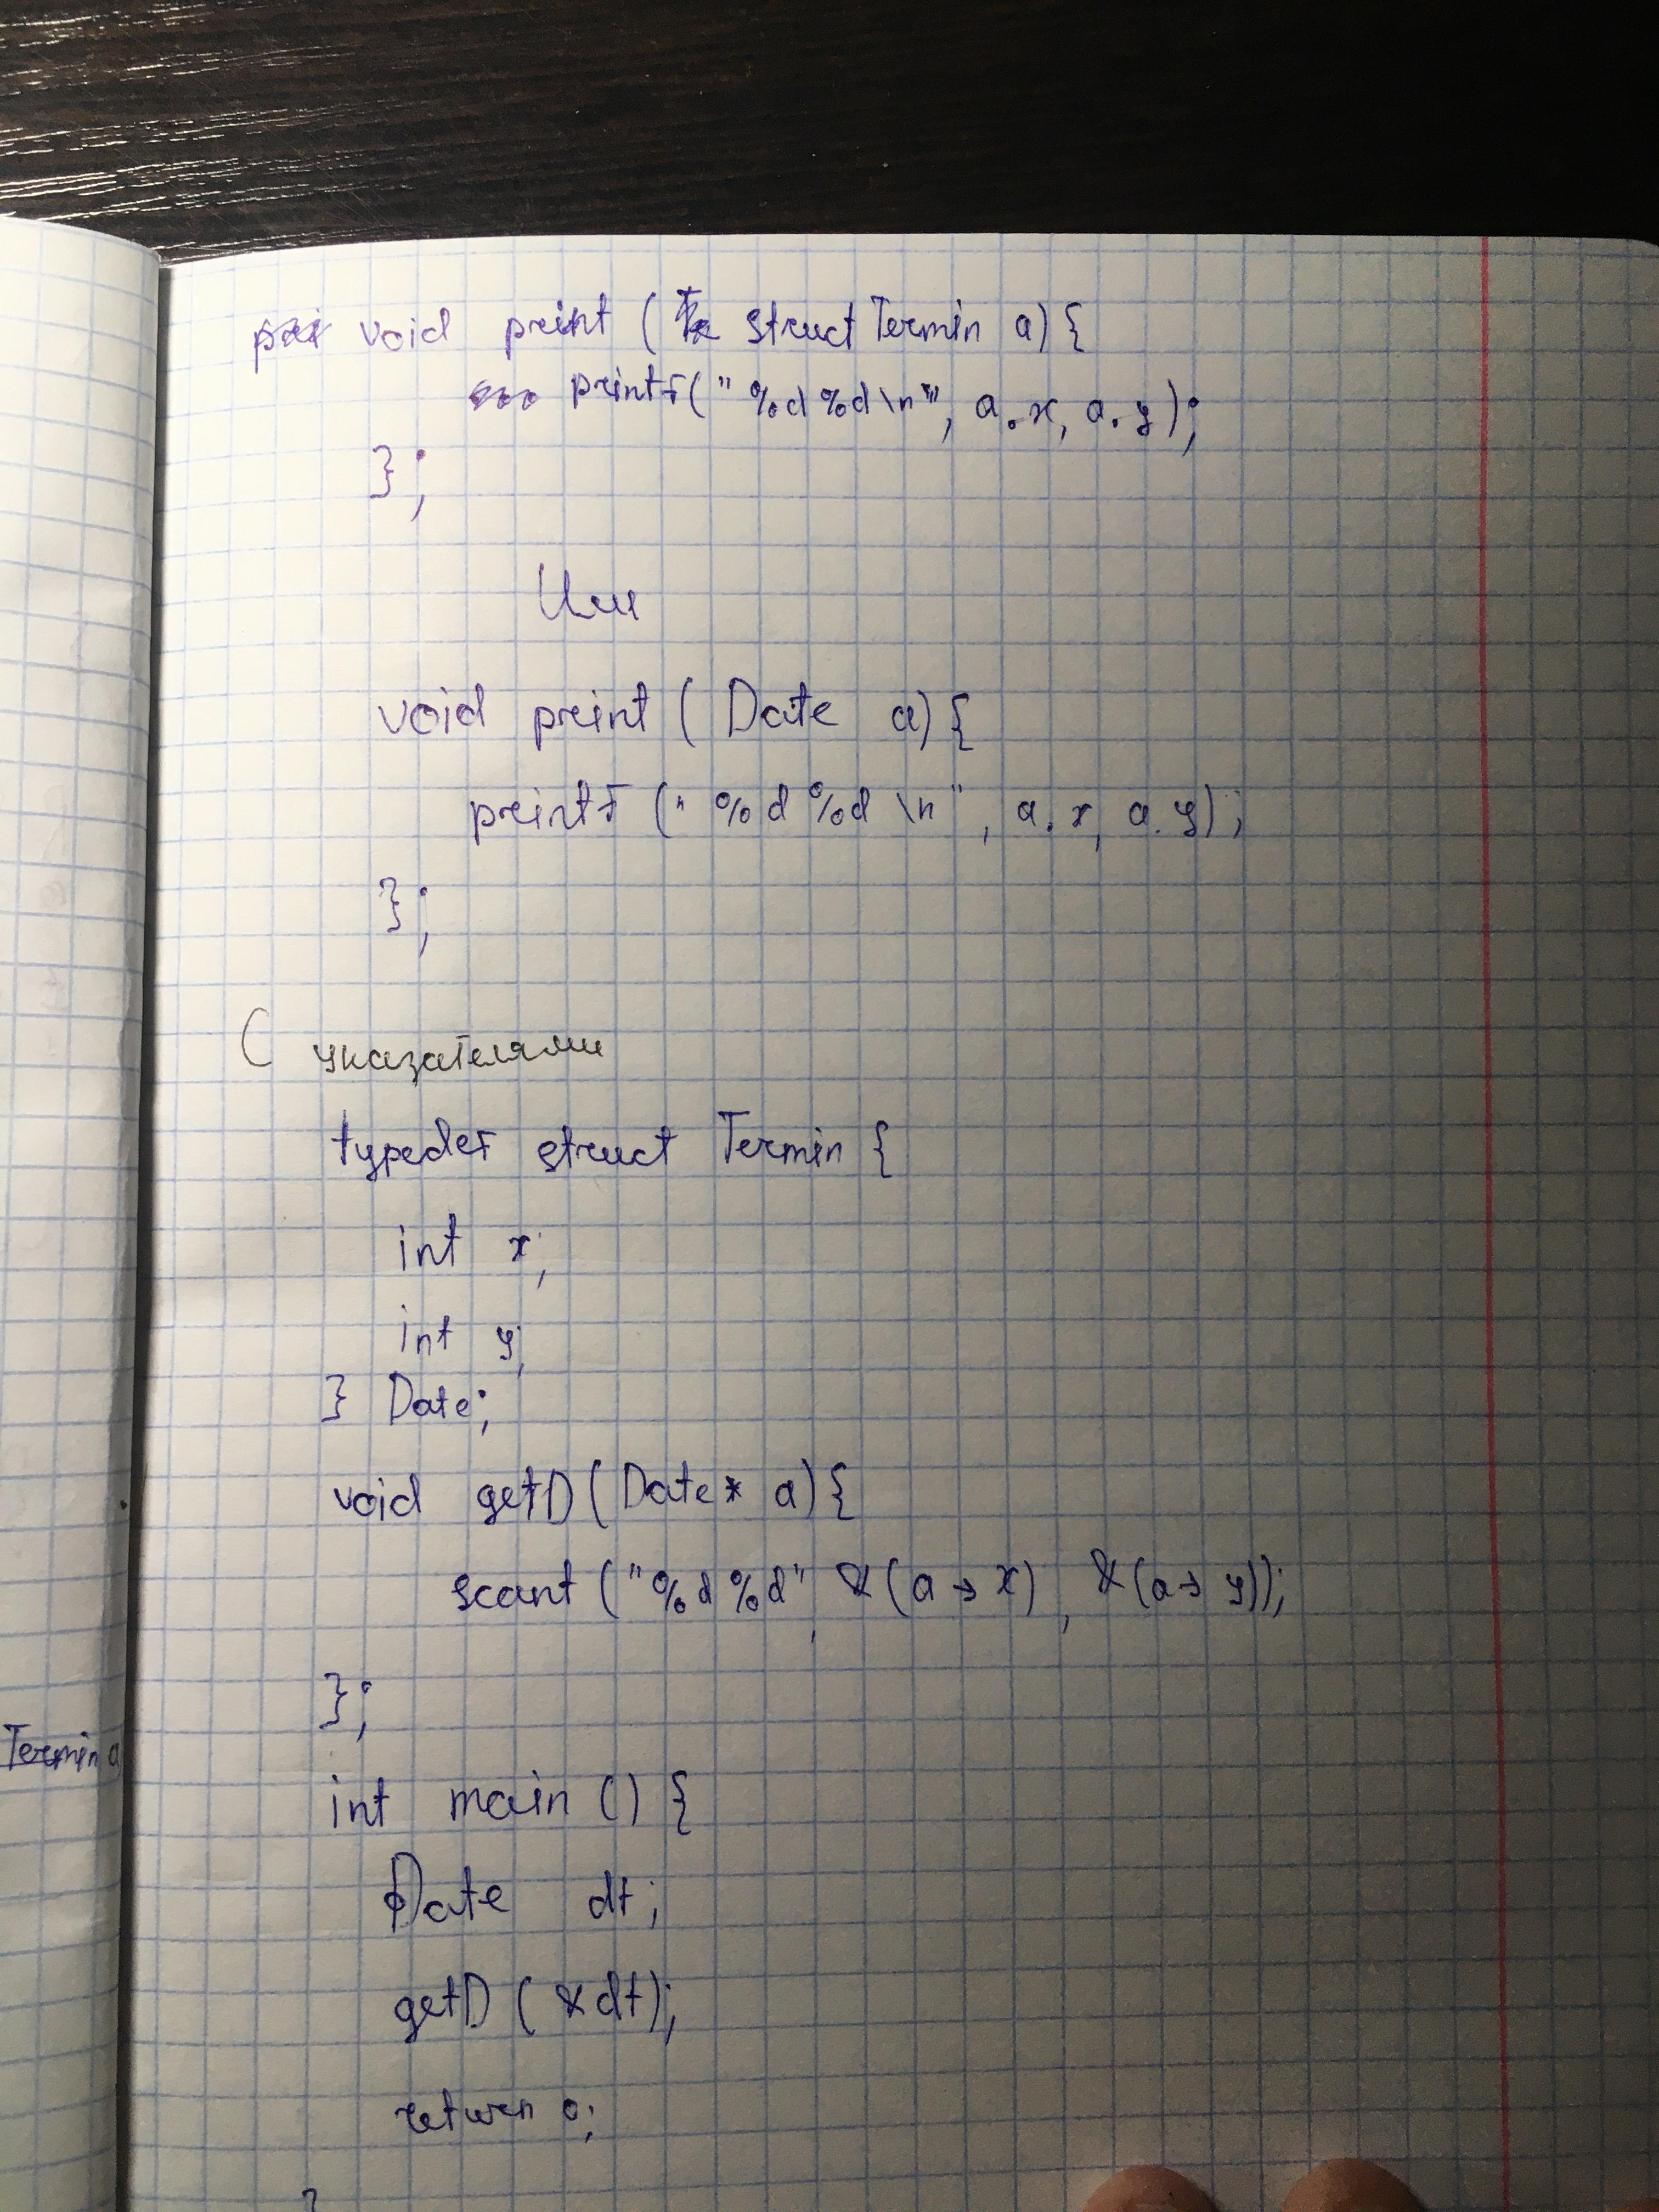 void print ( struct Termin a) {
printf(" %d %d \n", a.x, a.y);
};
Или
void print ( Date a) {
printf (" %d %d \n", a.x, a.y);
};
С указателями
typedef struct Termin {
int x;
int y;
} Date;
void getD (Date* a) {
scanf ("%d %d", &(a->x), &(a->y));
};
Termin a
int main () {
Date dt;
getD ( &dt);
return 0;
}